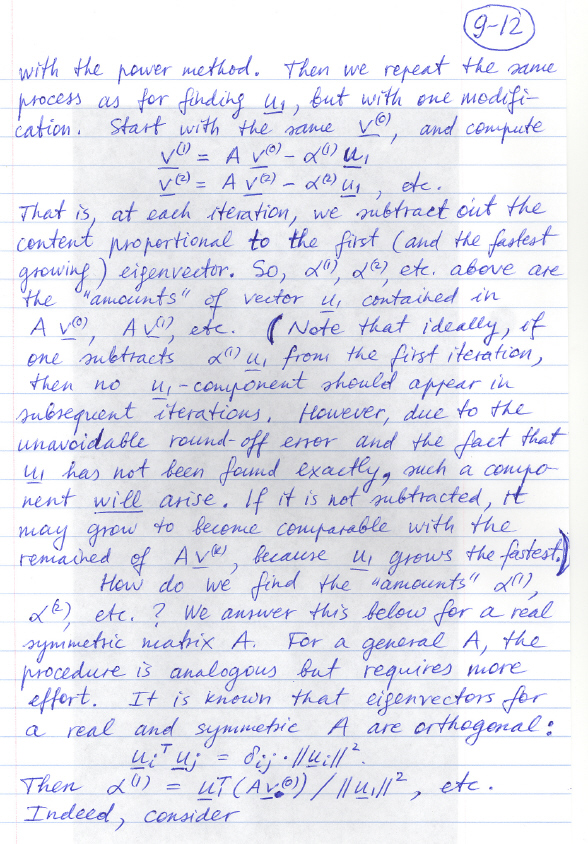 9-12
with the power method. Then we repeat the same
process as for finding u₁, but with one modifi-
cation. Start with the same v⁽⁰⁾, and compute
v⁽¹⁾ = A v⁽⁰⁾ - α⁽¹⁾ u₁
v⁽²⁾ = A v⁽²⁾ - α⁽²⁾ u₁ , etc.
That is, at each iteration, we subtract out the
content proportional to the first (and the fastest
growing) eigenvector. So, α⁽¹⁾, α⁽²⁾, etc. above are
the "amounts" of vector u₁ contained in
A v⁽⁰⁾, A v⁽¹⁾, etc. (Note that ideally, if
one subtracts α⁽¹⁾ u₁ from the first iteration,
then no u₁-component should appear in
subsequent iterations. However, due to the
unavoidable round-off error and the fact that
u₁ has not been found exactly, such a compo-
nent will arise. If it is not subtracted, it
may grow to become comparable with the
remained of A v⁽ᵏ⁾, because u₁ grows the fastest.)
How do we find the "amounts" α⁽¹⁾,
α⁽²⁾, etc. ? We answer this below for a real
symmetric matrix A. For a general A, the
procedure is analogous but requires more
effort. It is known that eigenvectors for
a real and symmetric A are orthogonal:
uᵢᵀ uⱼ = δᵢⱼ · ||uᵢ||² .
Then α⁽¹⁾ = uᵀ(A v⁽⁰⁾) / ||u₁||² , etc.
Indeed, consider